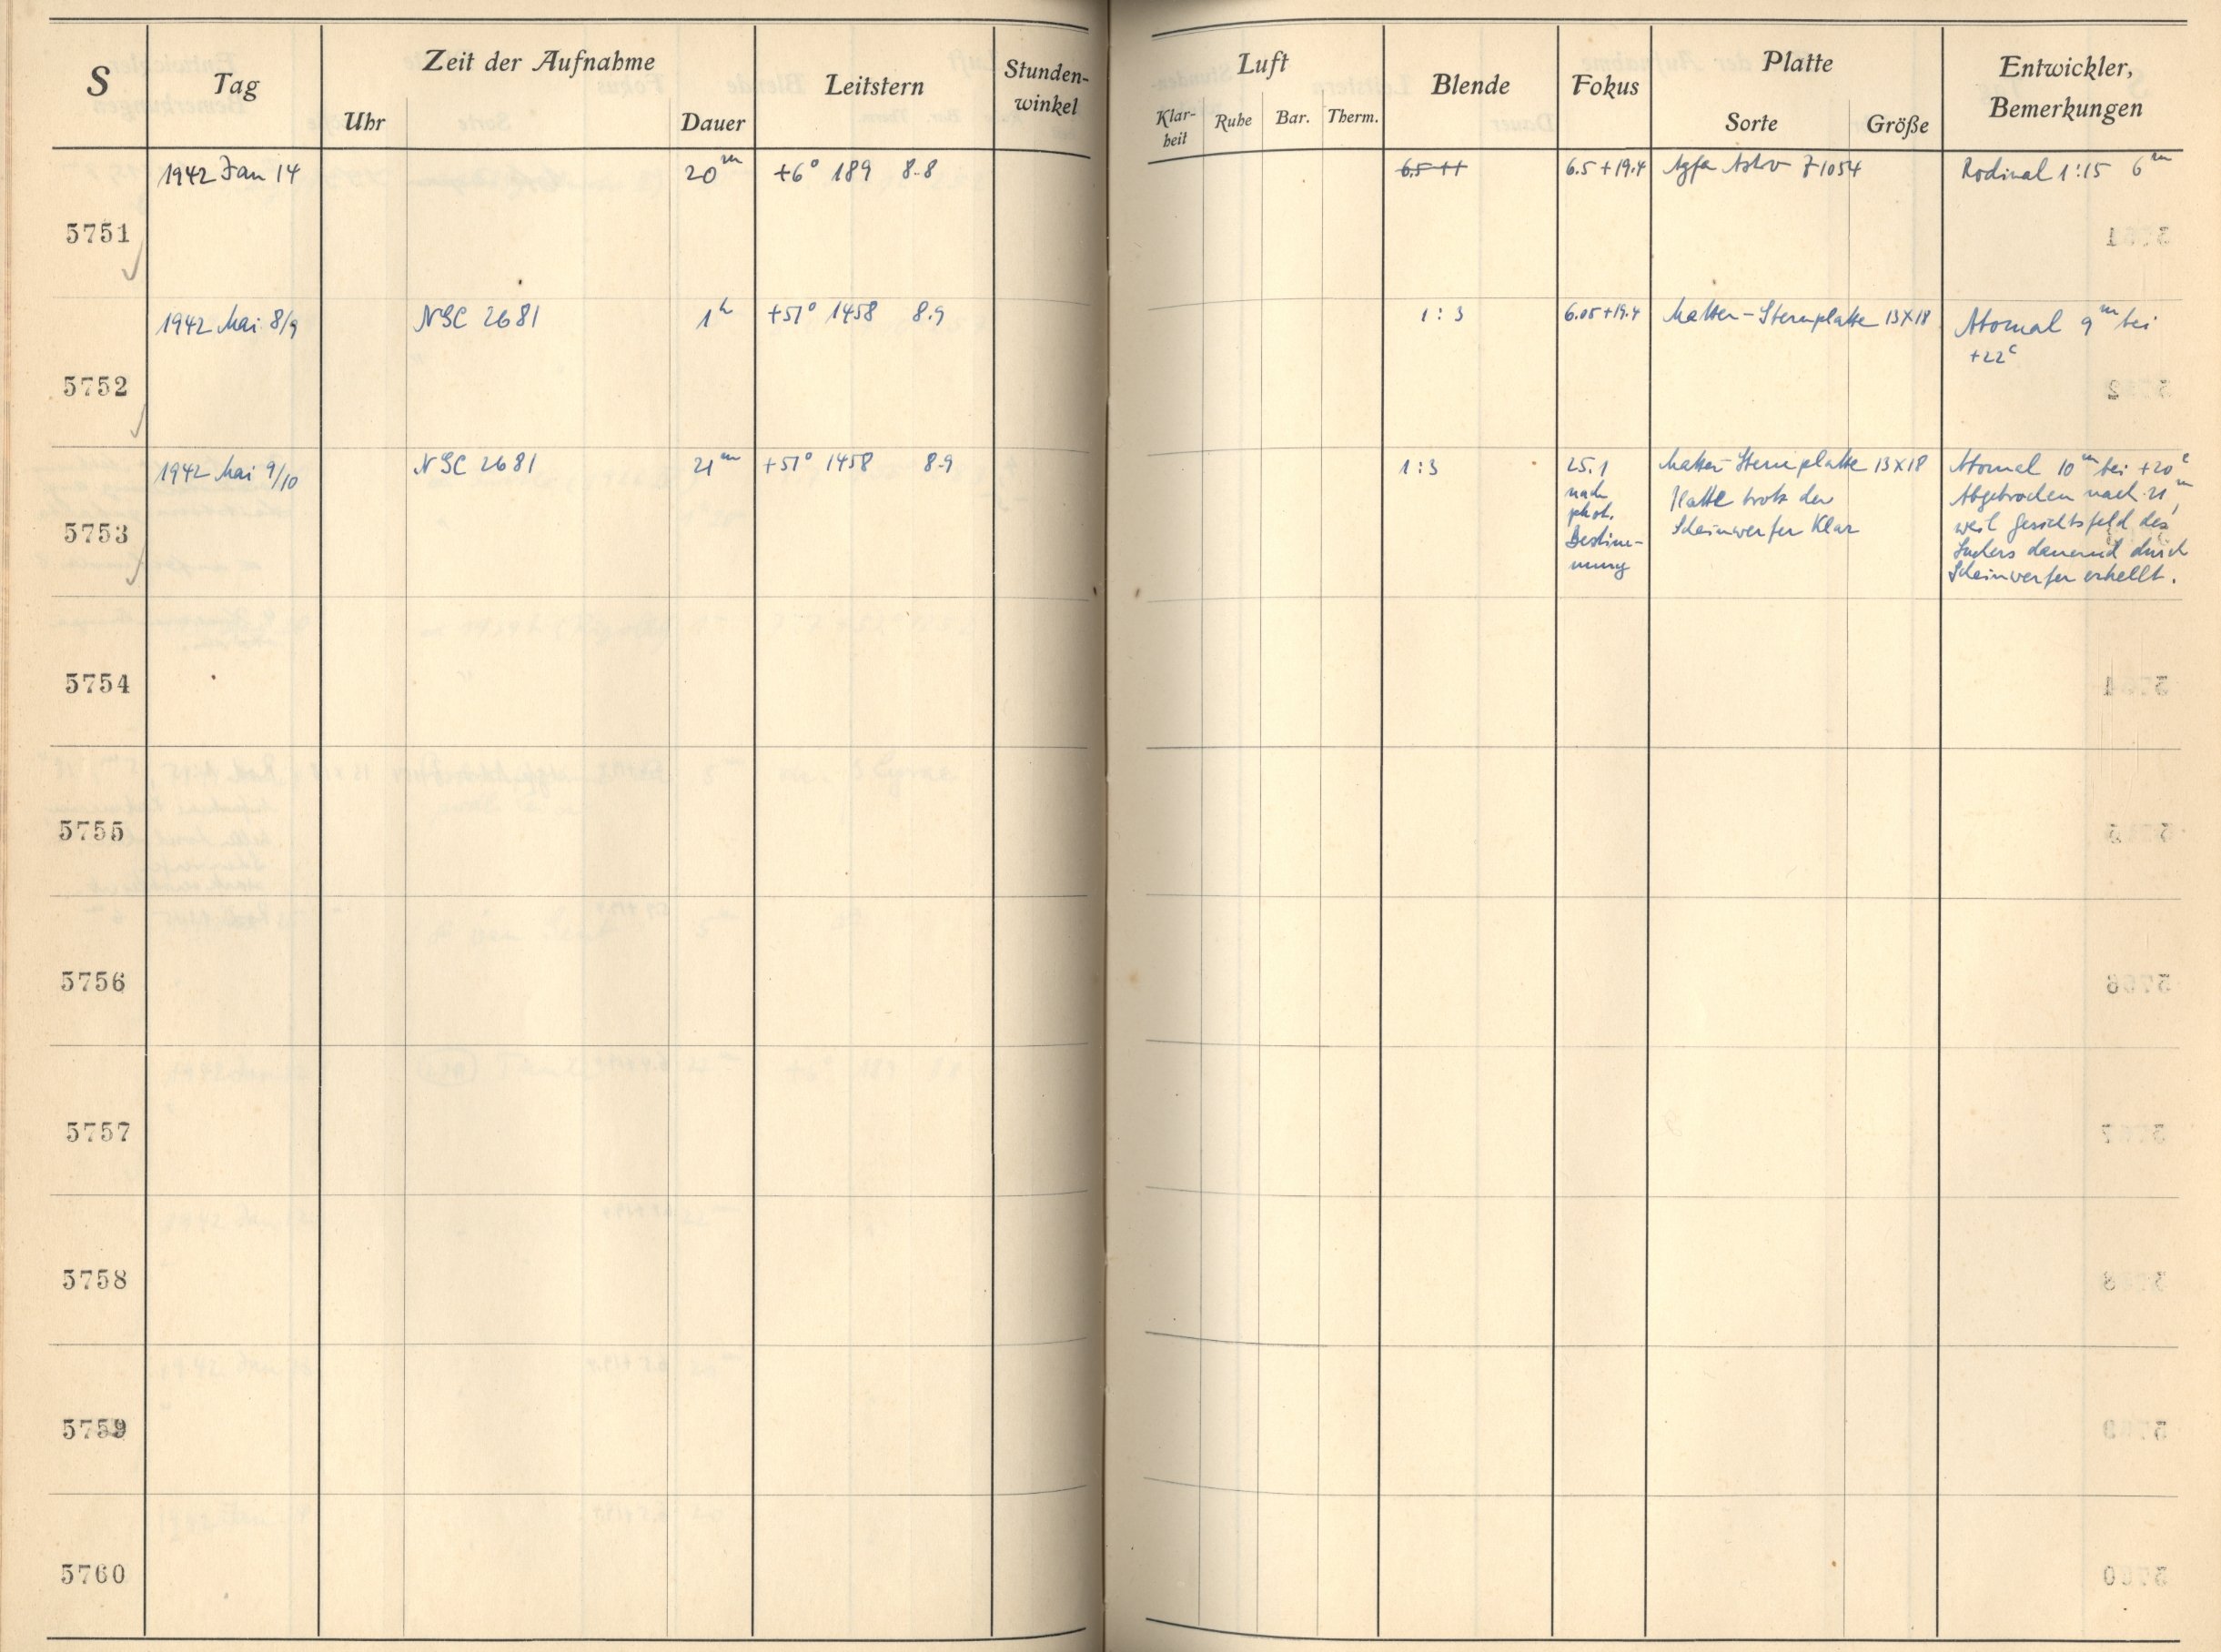 S Tag Zeit der Aufnahme Leitstern Stunden-
winkel
Uhr Dauer
Luft Blende Fokus Platte Entwickler,
Bemerkungen
Klar-
heit Ruhe Bar. Therm. Sorte Größe
5751 1942 Jan 14 20m +6° 189 8.8 6.5 + 19.4 Agfa Astro Z 1054 Rodinal 1:15 6m
5752 1942 Mai 8/9 NGC 2681 1h +51° 1458 8.9 1:3 6.05+19.4 Matter-Sternplatte 13X18 Atomal 9m bei
+22°
5753 1942 Mai 9/10 NGC 2681 21m +51° 1458 8.9 1:3 25.1
nach
phot.
Bestim-
mung
Matter Sternplatte 13X18
Platte trotz der
Scheinwerfer Klar
Atomal 10m bei +20°
Abgebrochen nach 21m,
weil Gesichtsfeld des
Suchers dauernd durch
Scheinwerfer erhellt.
5754
5755
5756
5757
5758
5759
5760